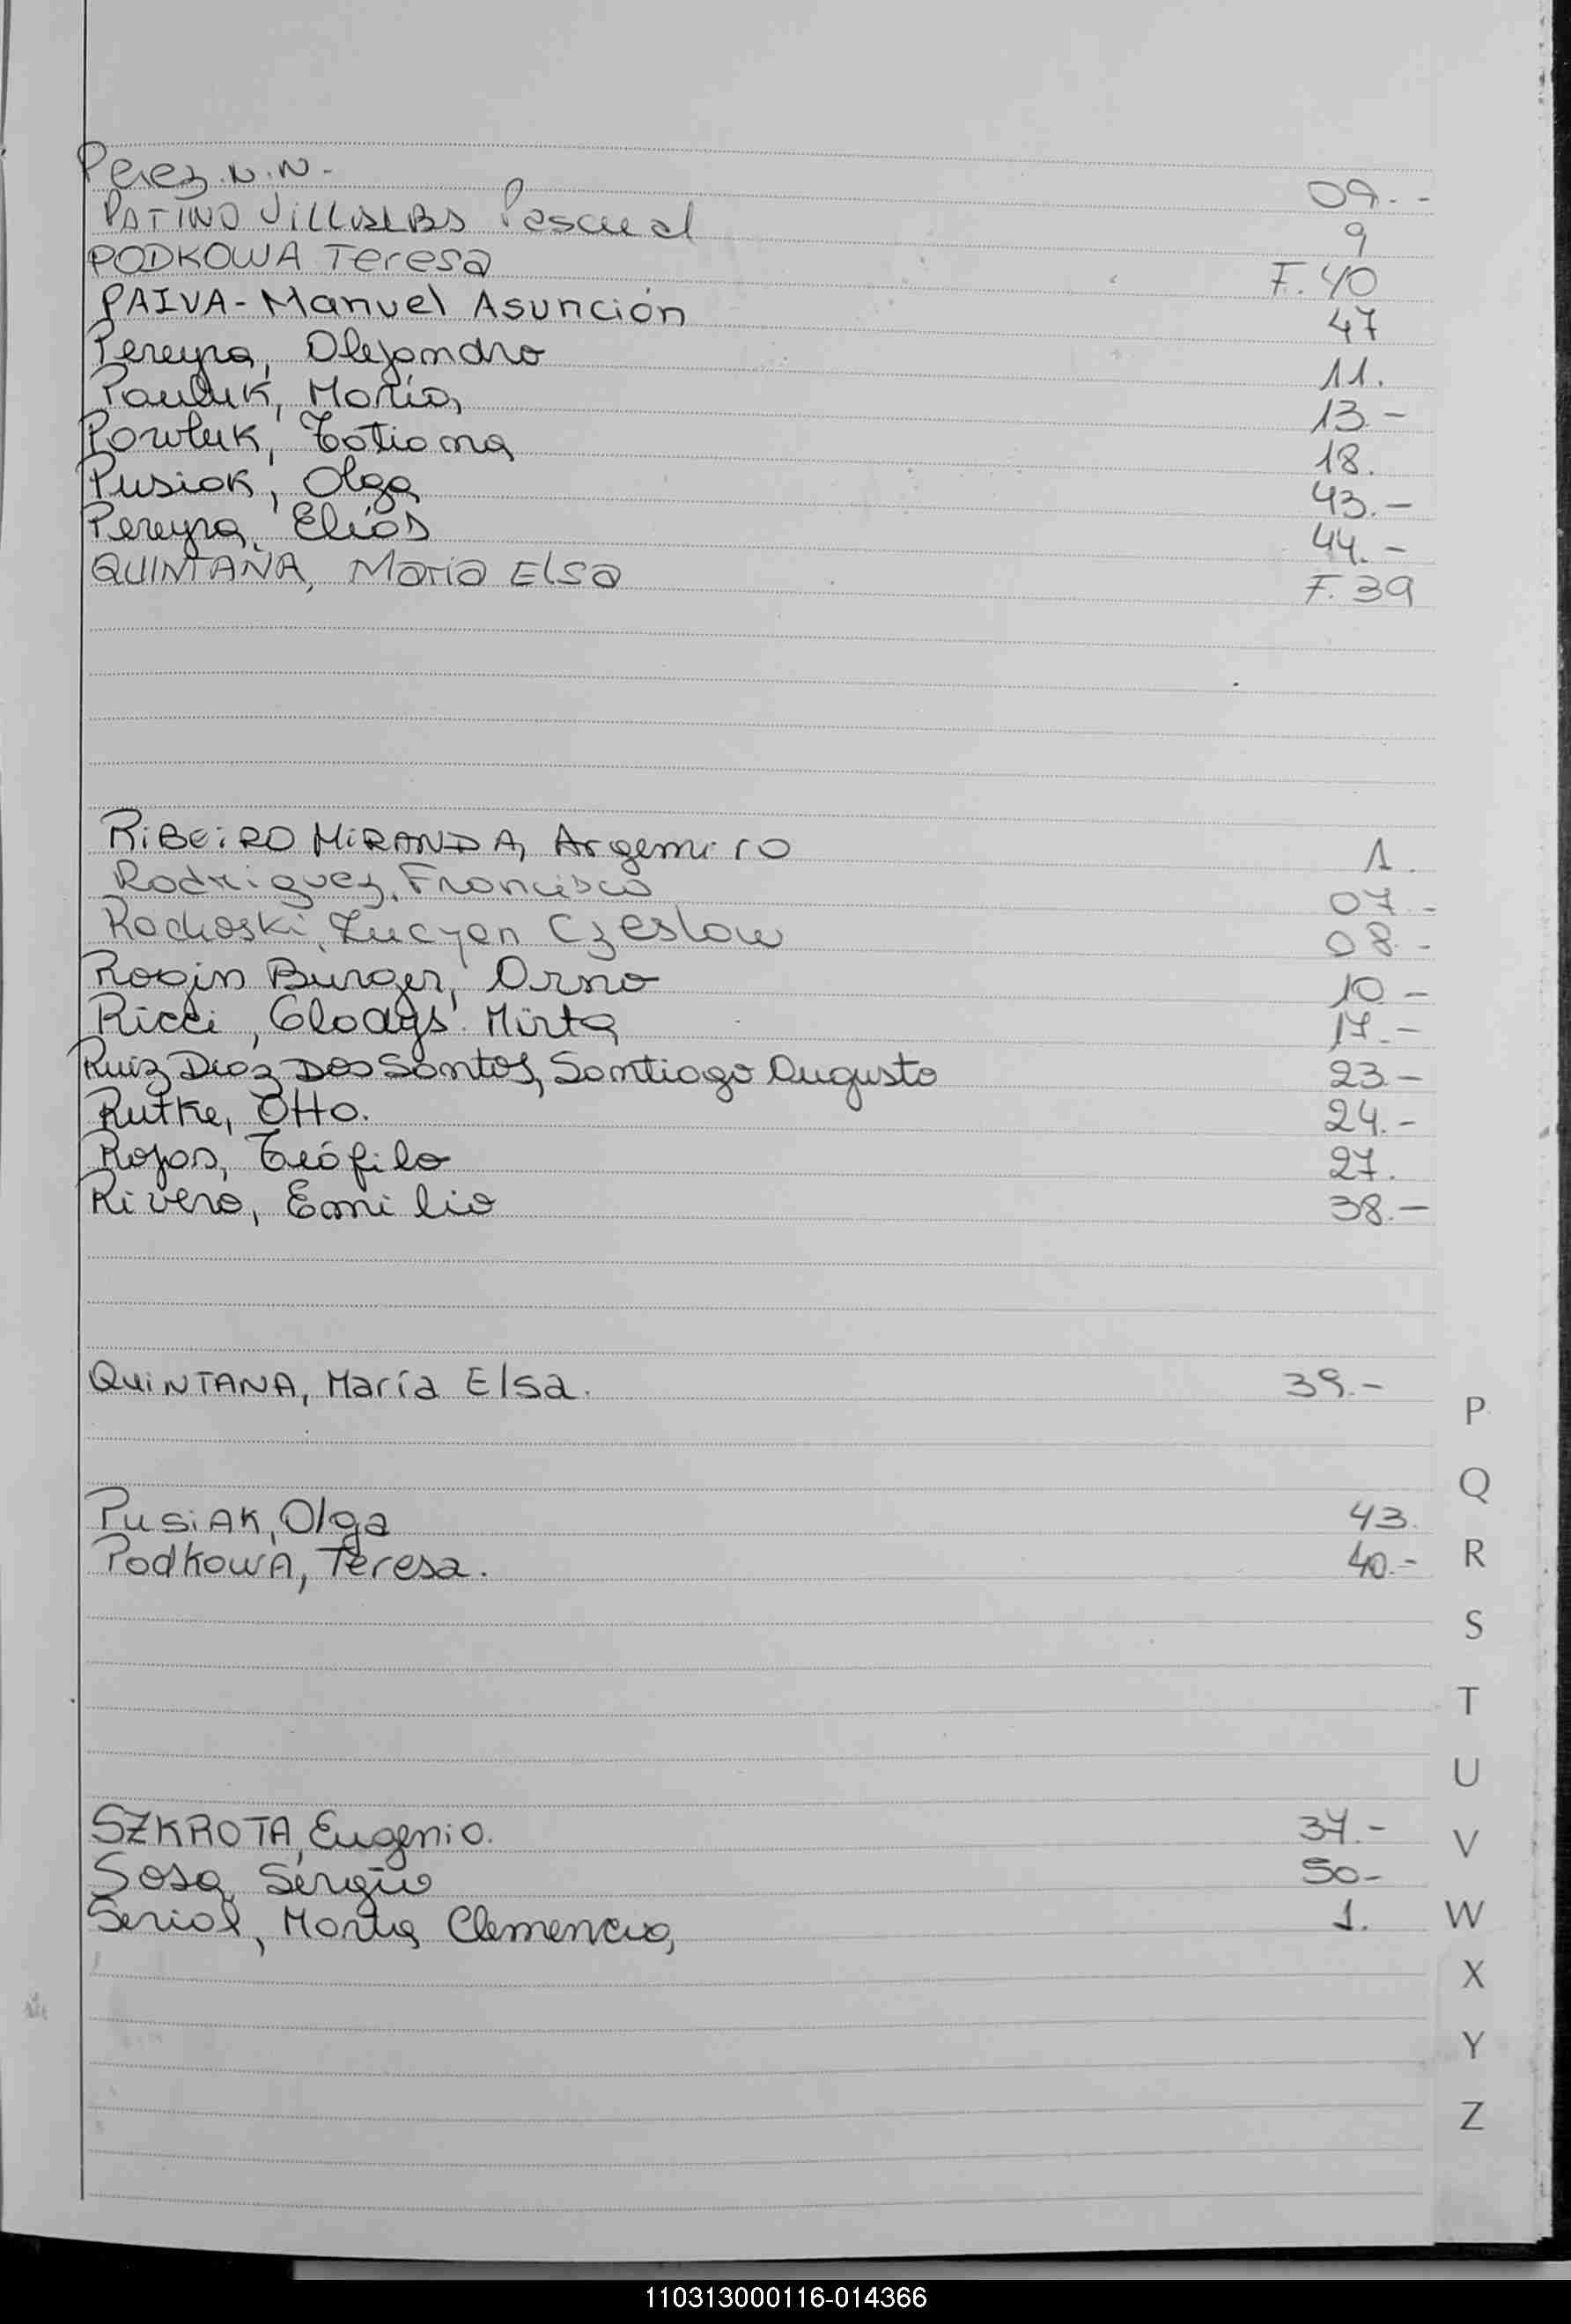 Perez N.N. - 09.-
PATIÑO VILLALBA Pascual 9
PODKOWA Teresa F. 40
PAIVA - Manuel Asunción 47
Pereyra, Alejandro 11.
Pauluk, María 13.-
Powluk, Tatiana 18.
Pusiak, Olga 43.-
Pereyra, Elías 44.-
QUINTANA, María Elsa F. 39
RiBEiRO MiRANDA, Argemiro 1.
Rodriguez, Francisco 07.-
Rachoski, Lucyan Czeslow 08.-
Rogin Burger, Arno 10.-
Ricci, Gladys Mirta 17.-
Ruiz Diaz Dos Santos, Santiago Augusto 23.-
Rutke, Otto. 24.-
Rojas, Teófilo 27.
Rivero, Emilio 38.-
QUiNTANA, María Elsa. 39.-
PUSiAK, Olga 43.
PodkowA, Teresa. 40.-
SZKROTA, Eugenio. 37.-
Sosa, Sergio 50-
Serial, Marta Clemencia, 1.
P
Q
R
S
T
U
V
W
X
Y
Z
110313000116-014366